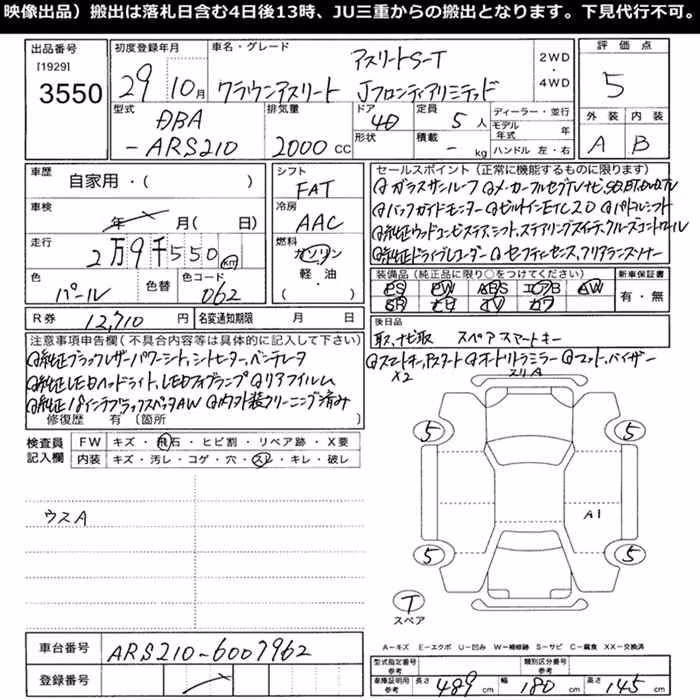 映像出品）搬出は落札日含む4日後13時、JU三重からの搬出となります。下見代行不可。
出品番号
[1929]
3550
初度登録年月
29 10月
車名・グレード
アスリートS-T
クラウンアスリート Jフロンティアリミテッド
2WD
・
4WD
評価点
5
外装 内装
A B
型式
DBA
-ARS210
排気量
2000 CC
ドア
4D
形状
定員
5人
積載
- kg
ディーラー・並行
モデル年式 年
ハンドル 左・右
車歴
自家用・( )
シフト
FAT
車検
年 月( 日)
冷房
AAC
走行
2万9千550 km
燃料
ガソリン
軽・油
( )
色
パール
色替
色コード
062
R券 12,710 円
名変通知期限 月 日
セールスポイント（正常に機能するものに限ります）
ガラスサンルーフ メーカーフルセグTVナビ,SD,BT,DVD,TV
バックガイドモニター ビルトインETC2.0 パドルシフト
純正ウッドコンビステア,シフト,ステアリングスイッチ,クルーズコントロール
純正ドライブレコーダー セーフティセンス,クリアランスソナー
装備品（純正品に限り○をつけてください）
PS PW ABS エアB AW
SR ナビ TV カワ
新車保証書
有・無
後日品
取説,ナビ取 スペアスマートキー
注意事項申告欄（不具合内容等は具体的に記入して下さい）
純正ブラックレザーパワーシート,シートヒーター,ベンチレータ
純正LEDヘッドライト,LEDフォグランプ リアフィルム
純正18インチブラックスパッタAW 内外装クリーニング済み
修復歴 有 〔箇所
スマートキー,Pスタート オートリトラミラー マット,バイザー
X2
スリA
検査員
記入欄
FW キズ・飛石・ヒビ割・リペア跡・X要
内装 キズ・汚レ・コゲ・穴・スレ・キレ・破レ
ウスA
5 5
A1
5 5
T
スペア
A―キズ E―エクボ U―凹み W―補修跡 S―サビ C―腐食 XX―交換済
車台番号 ARS210-6007962
登録番号
型式指定番号 参考
類別区分番号 参考
車庫証明用 参考
長さ 489 cm
幅 180 cm
高さ 145 cm